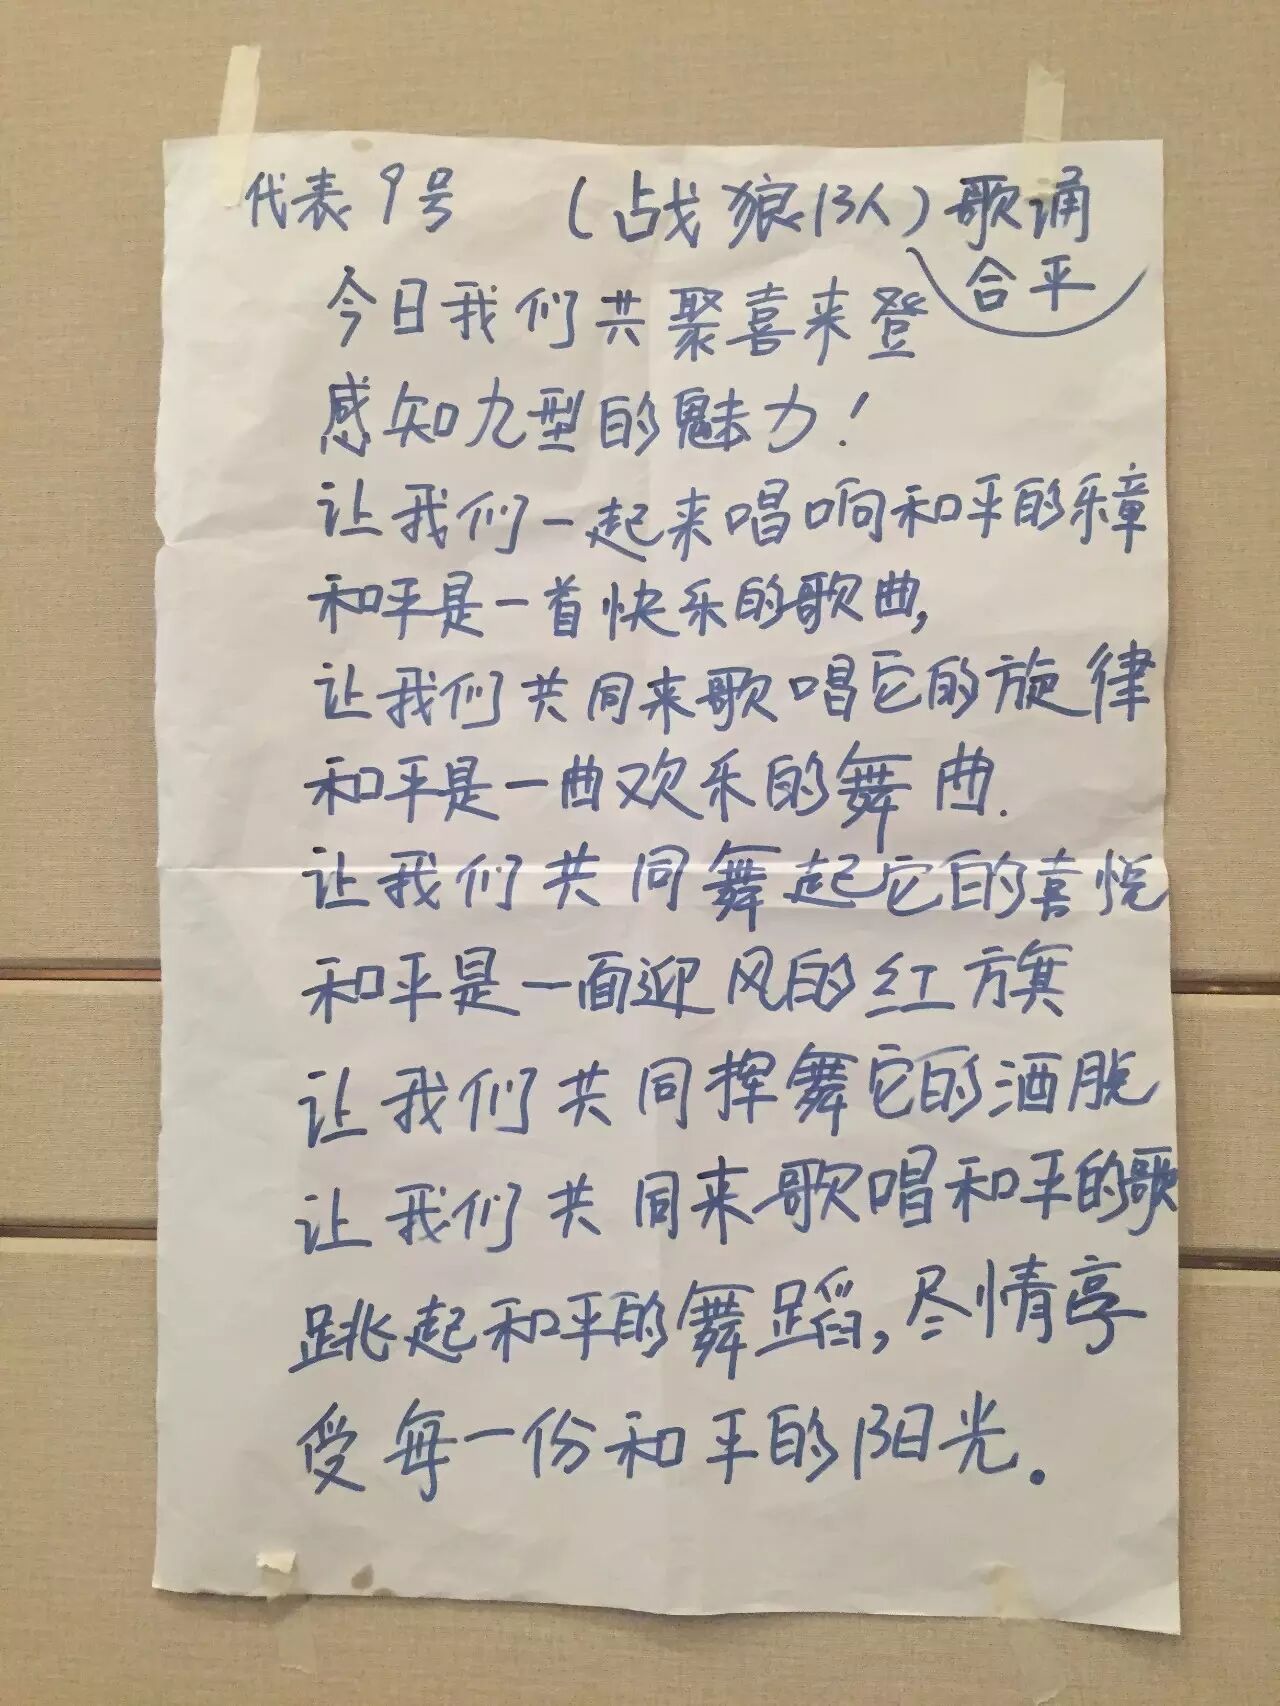 代表9号 (战狼队)歌诵
合平
今日我们共聚喜来登
感知九型的魅力！
让我们一起来唱响和平的乐章
和平是一首快乐的歌曲,
让我们共同来歌唱它的旋律
和平是一曲欢乐的舞曲.
让我们共同舞起它的喜悦
和平是一面迎风的红旗
让我们共同挥舞它的洒脱
让我们共同来歌唱和平的歌
跳起和平的舞蹈,尽情享
受每一份和平的阳光.